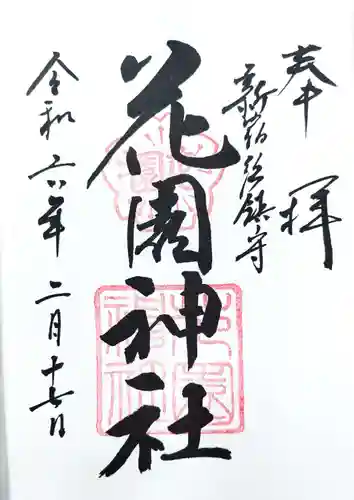 奉拝
新宿総鎮守
花園神社
令和六年二月十七日